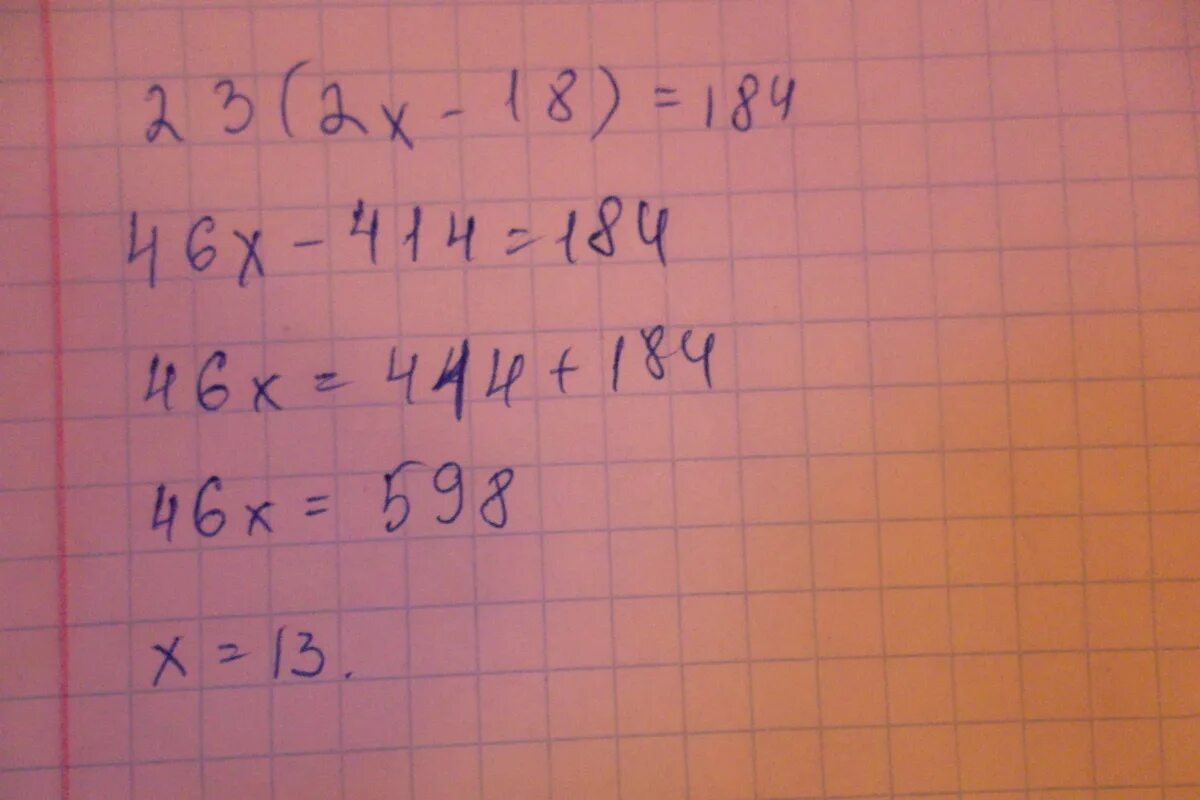 23(2x - 18) = 184
46x - 414 = 184
46x = 414 + 184
46x = 598
x = 13.